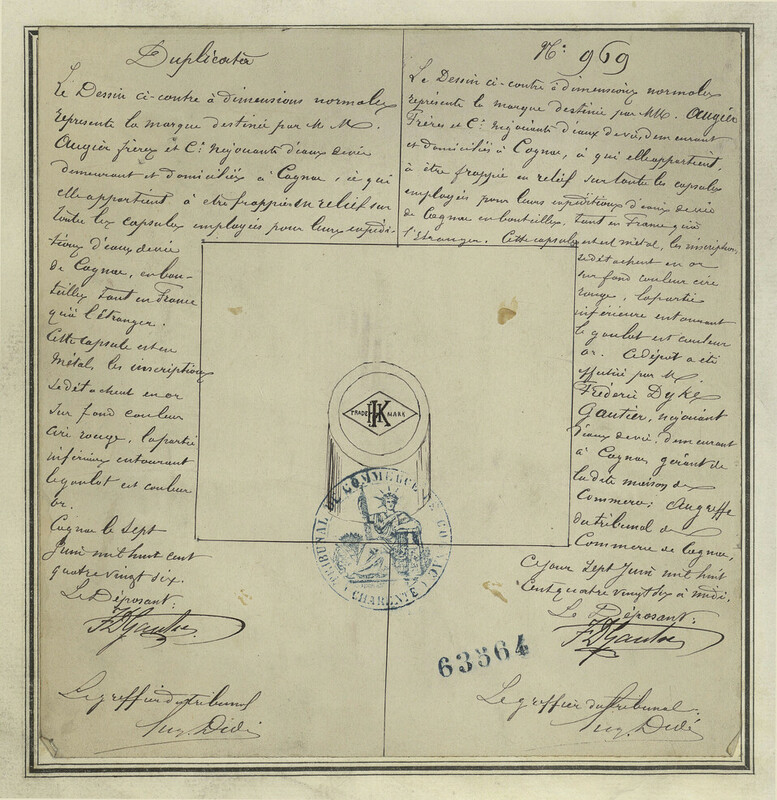 Duplicata
Le Dessin ci-contre à dimensions normales
représente la marque destinée par M M.
Augier frères et Cie négociants d'eaux de vie
demeurant et domiciliés à Cognac, à qui
elle appartient à être frappée en relief sur
toute les capsules employées pour leurs expédi-
tions d'eaux de vie
de Cognac, en bou-
teilles tant en France
qu'à l'étranger.
Cette capsule est en
Métal, les inscriptions
se détachent en or
sur fond couleur
cire rouge, la partie
inférieure entourant
le goulot est couleur
or.
Cognac le sept
Juin mil huit cent
quatre vingt six.
Le Déposant:
F D Gautier
Le greffier du tribunal
Eug. Didi
No 969
Le Dessin ci-contre à dimensions normales
représente la marque destinée par MM. Augier
Frères et Cie négociants d'eaux de vie, demeurant
et domiciliés à Cognac, à qui elle appartient,
à être frappée en relief sur toute les capsules
employées pour leurs expéditions d'eaux de vie
de Cognac en bouteilles, tant en France qu'à
l'étranger. Cette capsule est en métal, les inscriptions
se détachent en or
sur fond couleur cire
rouge, la partie
inférieure entourant
le goulot est couleur
or. Ce dépôt a été
effectué par M.
Frédéric Dyke
Gautier, négociant
d'eaux de vie, demeurant
à Cognac, gérant de
la dite maison de
Commerce; Au greffe
du tribunal de
Commerce de Cognac,
Ce jour sept Juin mil huit
Cent quatre vingt six à midi.
Le Déposant:
F D Gautier
Le greffier du tribunal
Eug. Didi
TRADE HK MARK
TRIBUNAL DE COMMERCE DE COGNAC
(CHARENTE)
63564